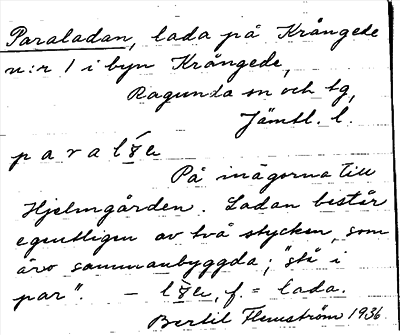 Paraladan, lada på Krångede
n:r 1 i byn Krångede,
Ragunda sn och tg,
Jämtl. l.
paral
På inägorna till
Hjelmgården. Ladan består
egentligen av två stycken, som
äro sammanbyggda; "stå i
par". – f. = lada.
Bertil Flemström 1936.